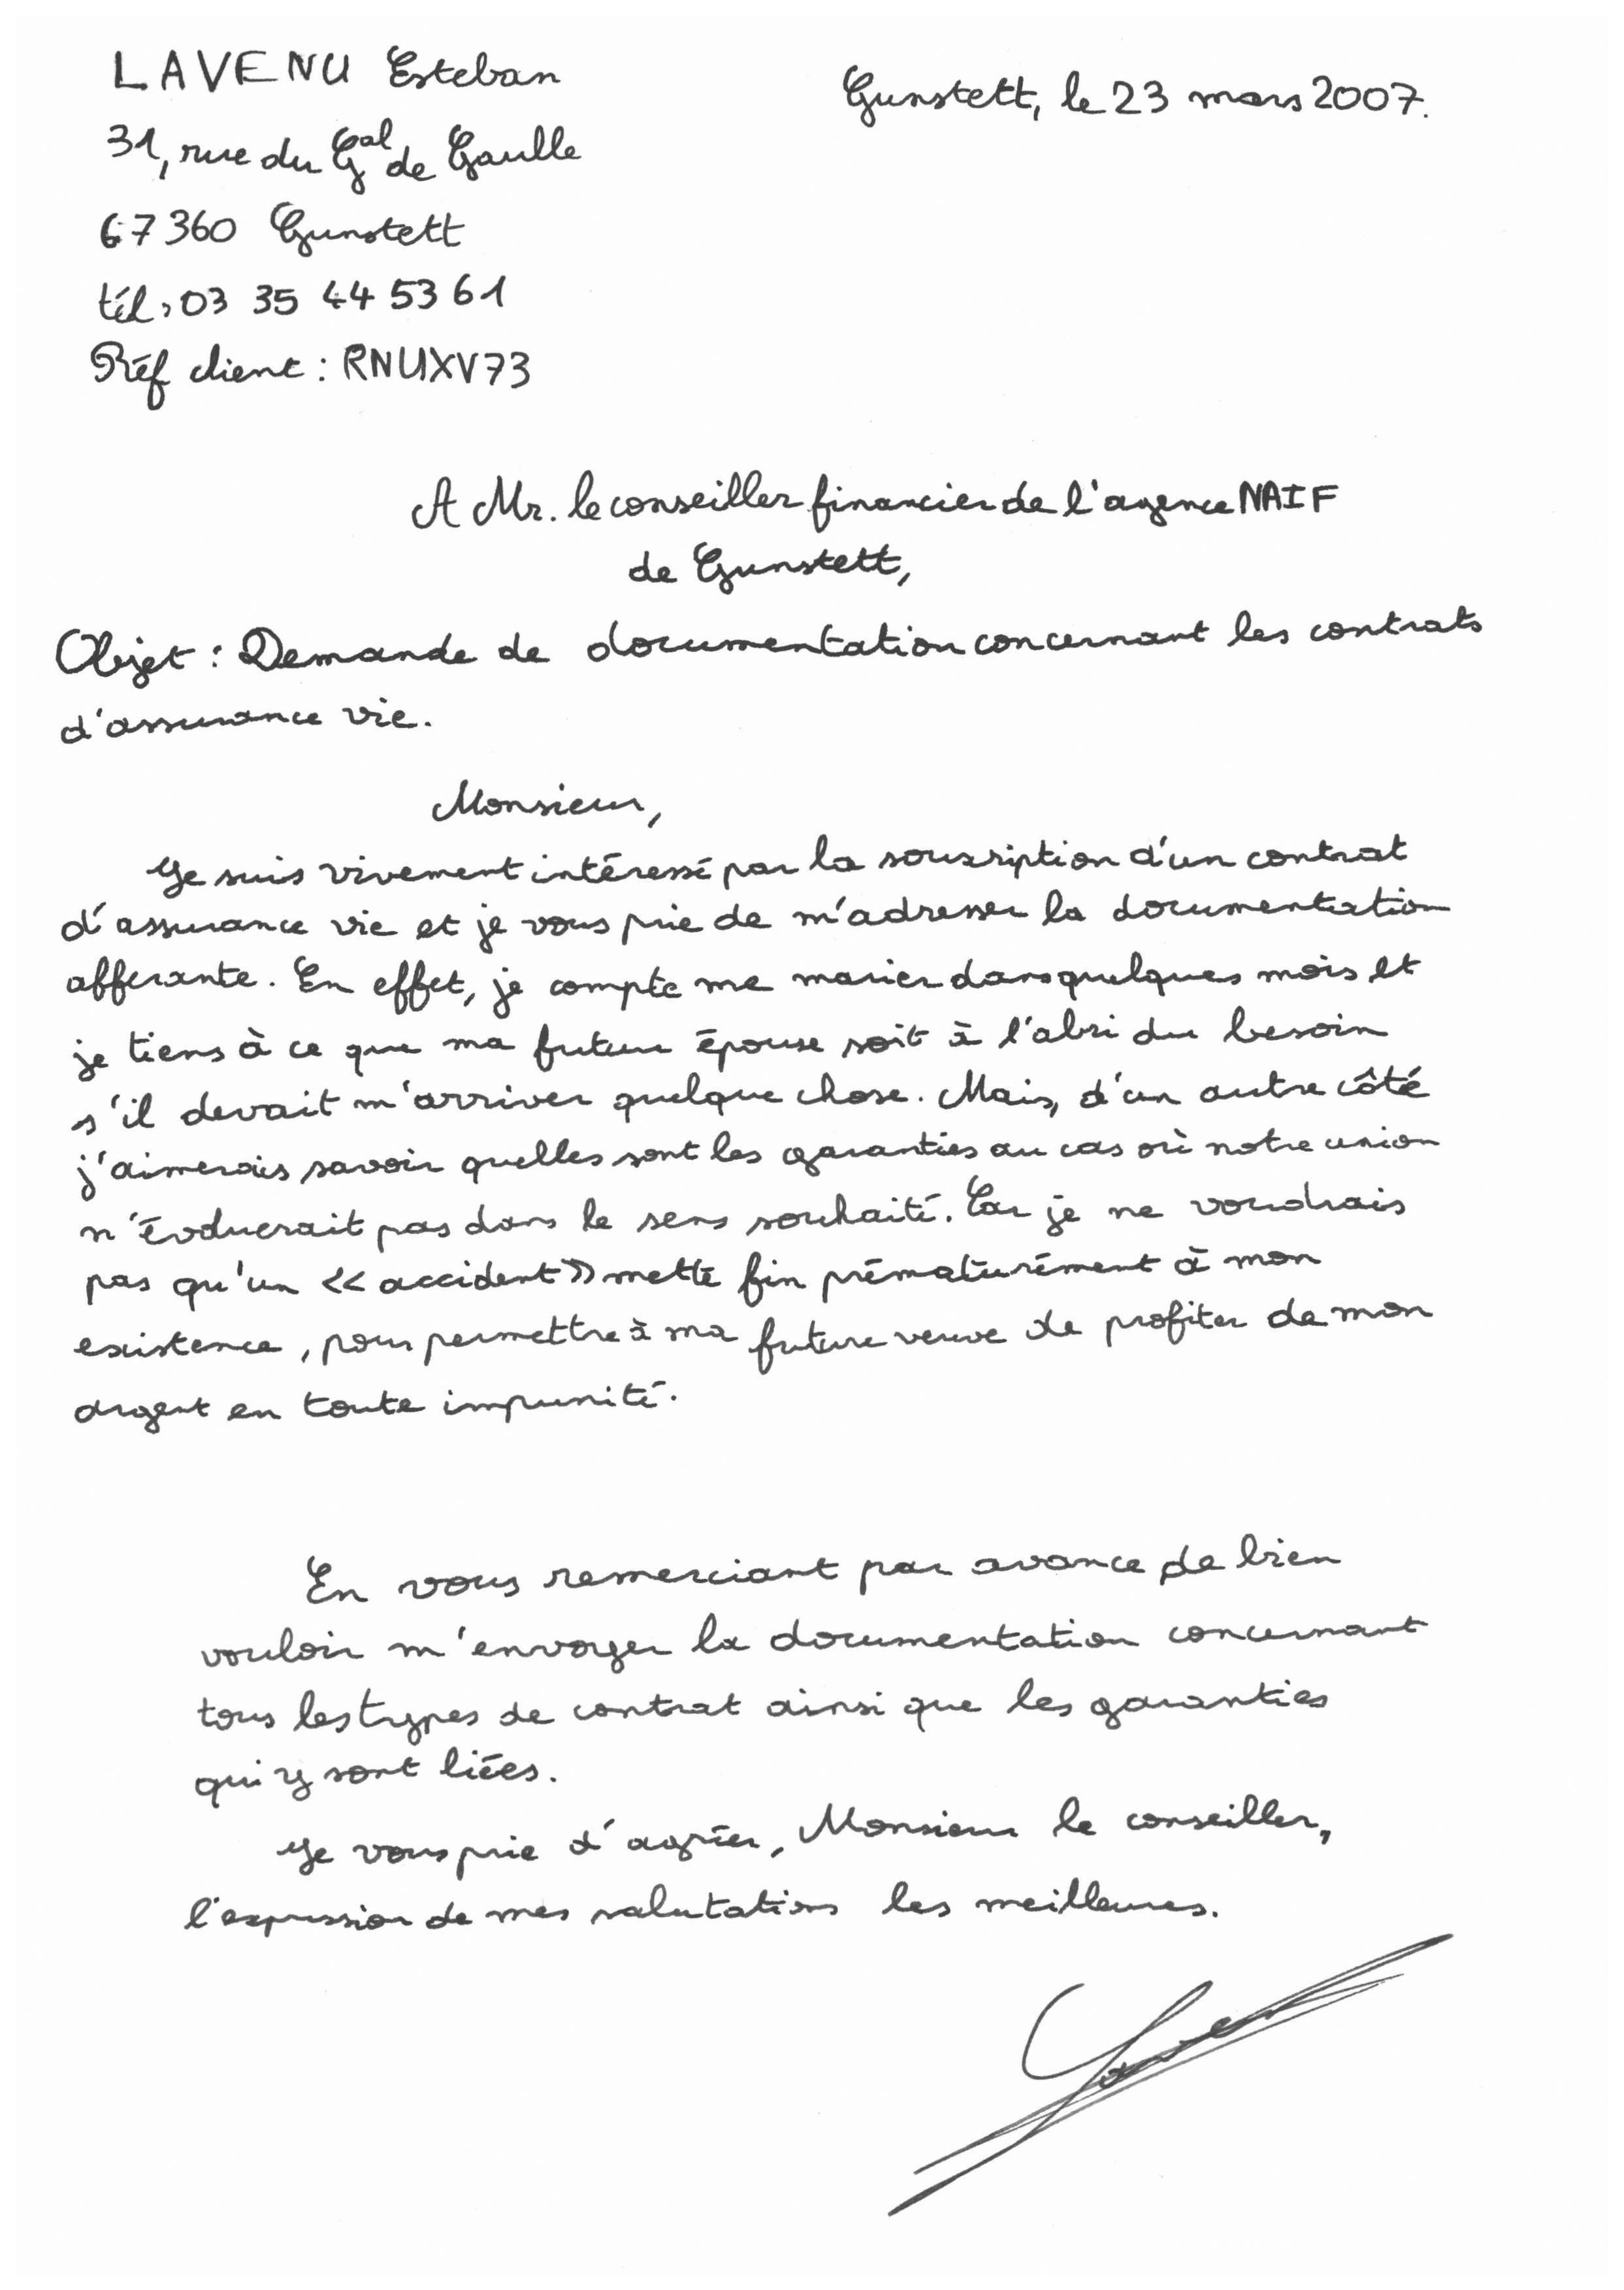 LAVENU Esteban
Gunstett, le 23 mars 2007.
31, rue du Gal de Gaulle
67360 Gunstett
tél : 03 35 44 53 61
Réf client : RNUXV73
A Mr. le conseiller financier de l'agence NAIF
de Gunstett,
Objet : Demande de documentation concernant les contrats
d'assurance vie.
Monsieur,
Je suis vivement intéressé par la souscription d'un contrat
d'assurance vie et je vous prie de m'adresser la documentation
afférante. En effet, je compte me marier dans quelques mois et
je tiens à ce que ma future épouse soit à l'abri du besoin
s'il devait m'arriver quelque chose. Mais, d'un autre côté
j'aimerais savoir quelles sont les garanties au cas où notre union
n'évoluerait pas dans le sens souhaité. Car je ne voudrais
pas qu'un << accident >> mette fin prématurément à mon
existence, pour permettre à ma future veuve de profiter de mon
argent en toute impunité.
En vous remerciant par avance de bien
vouloir m'envoyer la documentation concernant
tous les types de contrat ainsi que les garanties
qui y sont liées.
Je vous prie d'agréer, Monsieur le conseiller,
l'expression de mes salutations les meilleures.